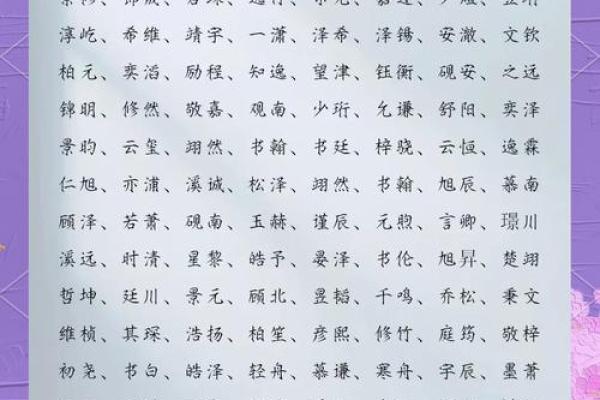 淳屹、希维、靖宇、一潇、泽希、泽锡、安澈、文钦
柏元、奕滔、励程、知逸、望津、钰衡、砚安、之远
锦明、修然、敬嘉、观南、少珩、允谦、舒阳、奕泽
景昀、云玺、翊然、书翰、书廷、梓骁、云恒、逸霖
仁旭、亦浦、溪诚、松泽、翊然、书翰、旭辰、慕南
顾泽、若萧、砚南、玉赫、谨辰、元煦、言卿、璟川
溪远、时清、星黎、皓予、晏泽、书伦、旭昇、楚翊
哲坤、廷川、景元、顾北、昱韬、千鸣、乔松、秉文
维桢、其琛、浩扬、柏笙、彦熙、修竹、庭筠、敬梓
初尧、书白、皓泽、轻舟、慕谦、寒舟、宇辰、墨萧